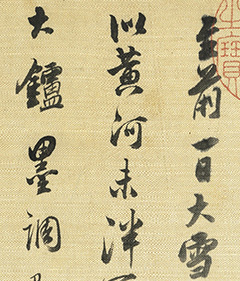 至前一日大雪
以黄河未泮
大鑪墨調